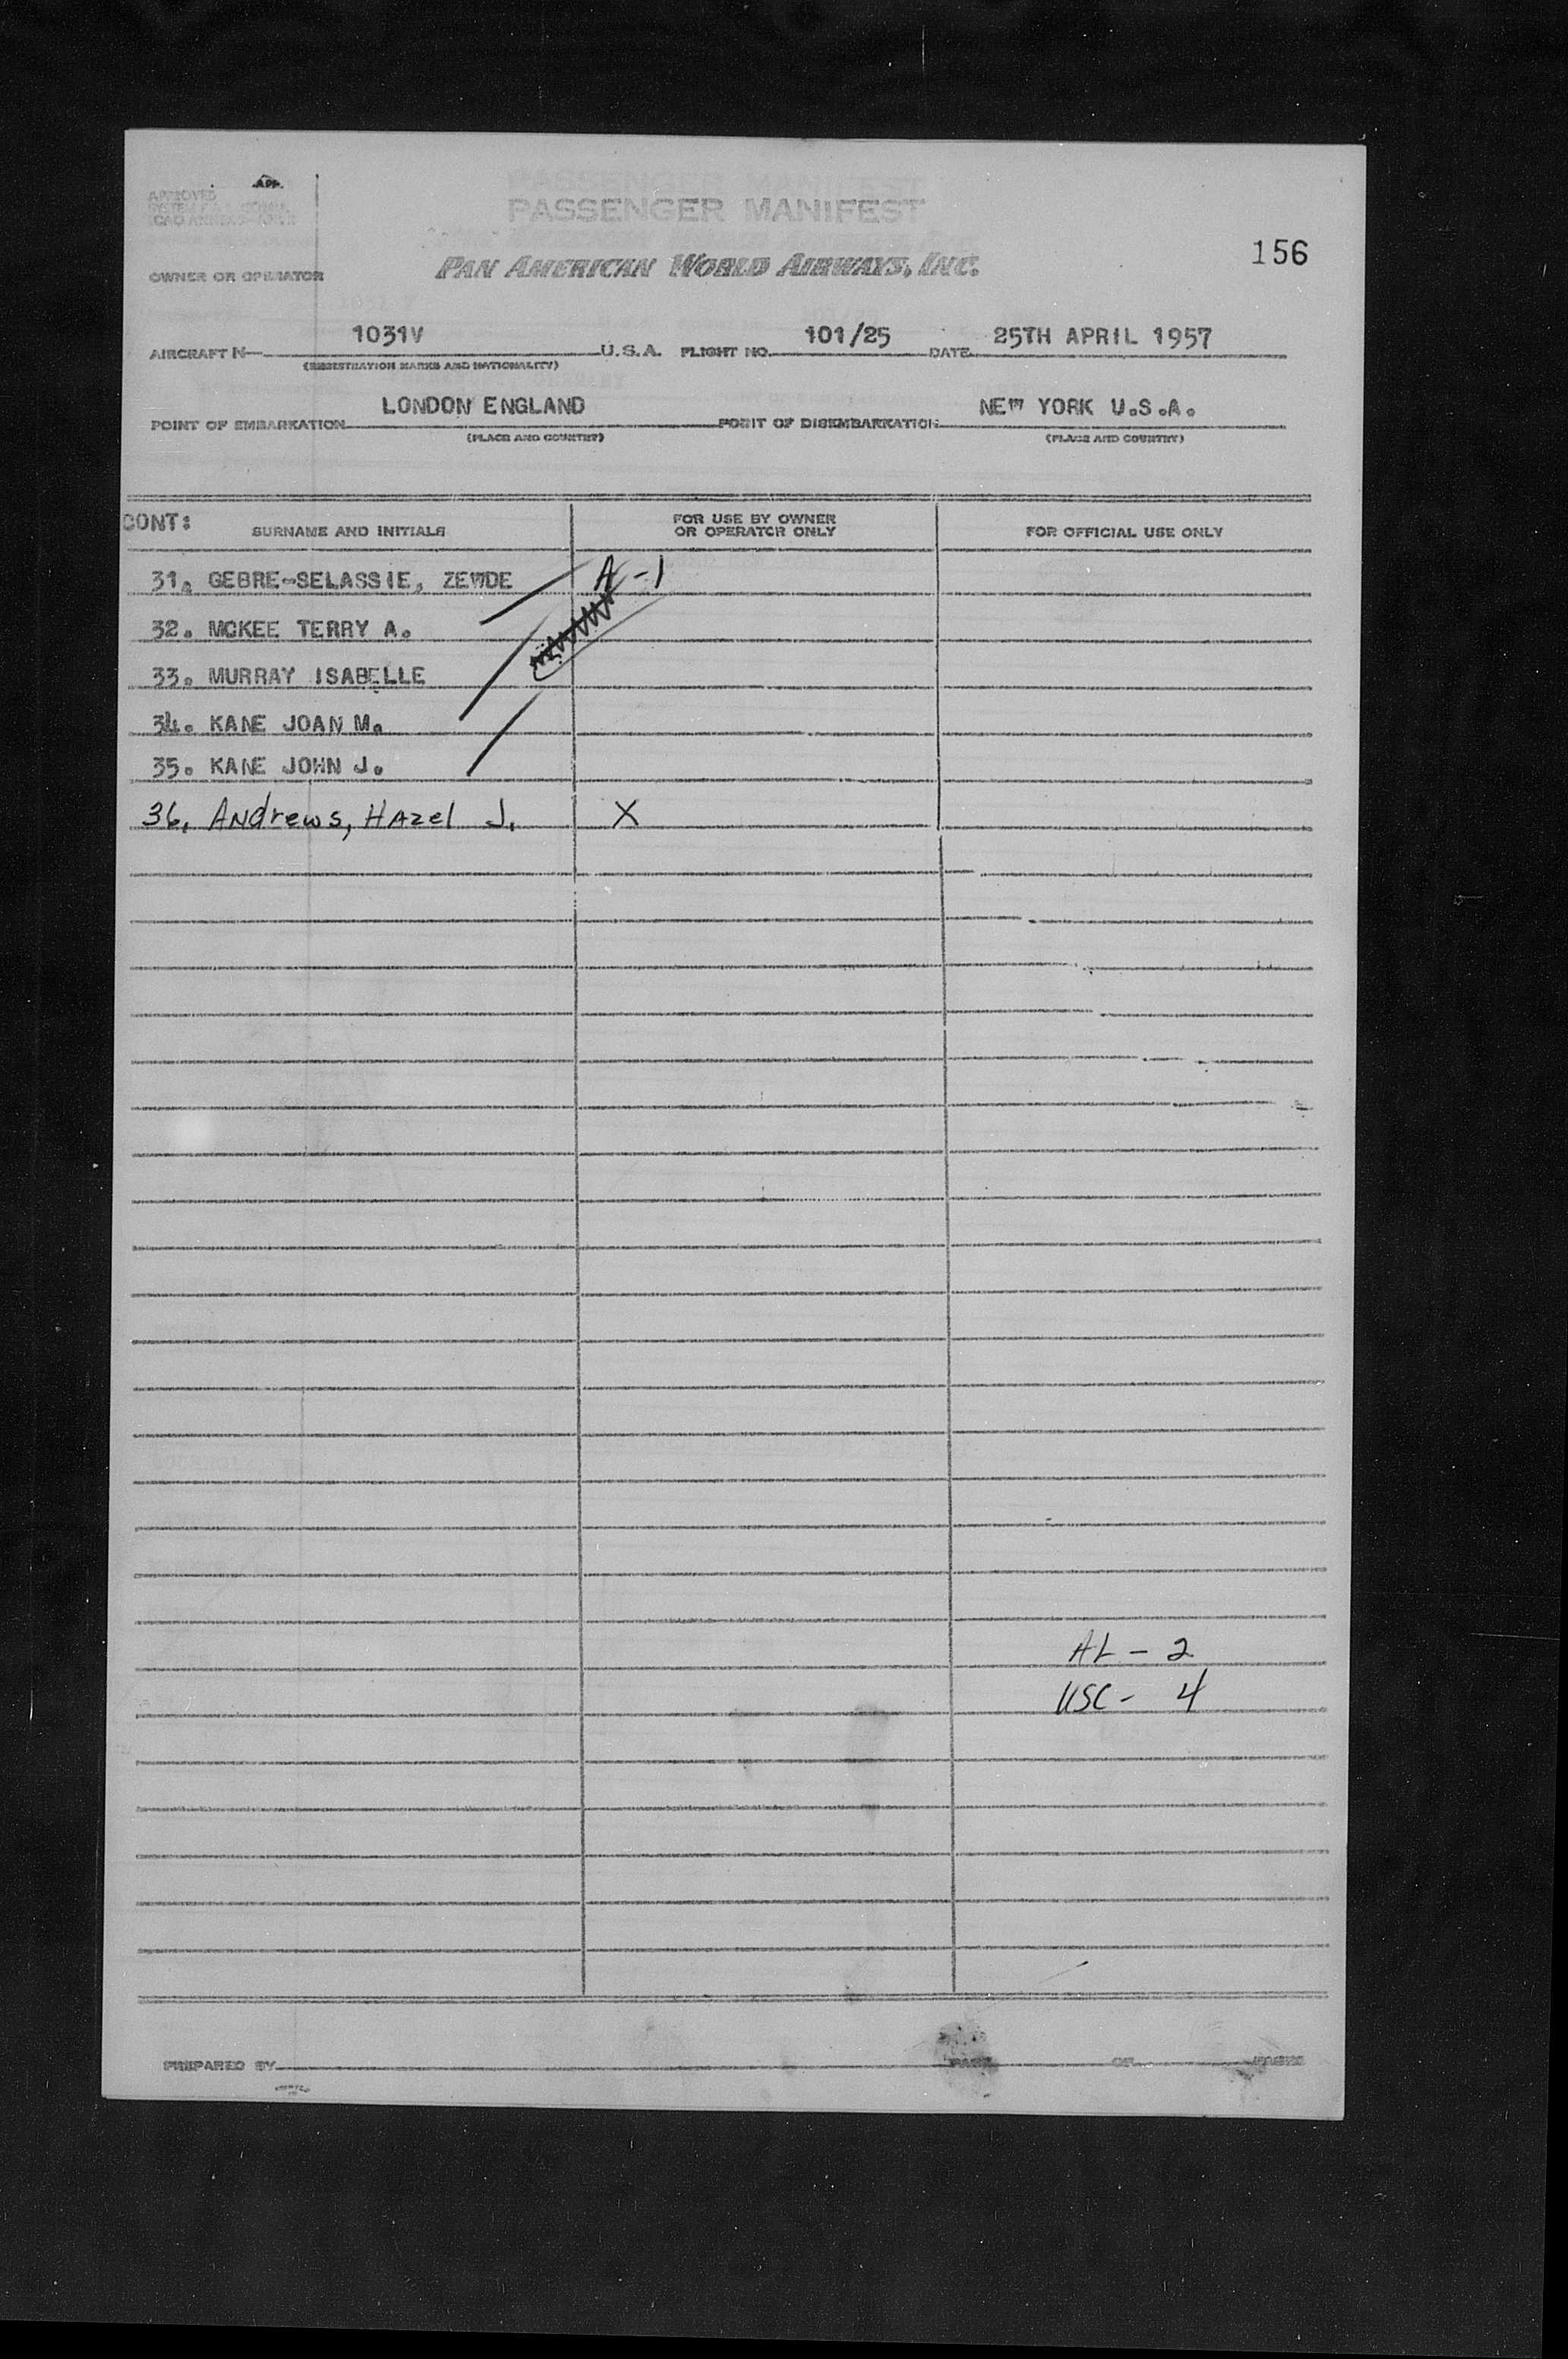 APP.
APPROVED
PASSENGER MANIFEST
156
OWNER OR OPERATOR
PAN AMERICAN WORLD AIRWAYS, INC.
AIRCRAFT N 1031V U.S.A. FLIGHT NO. 101/25 DATE 25TH APRIL 1957
(REGISTRATION MARKS AND NATIONALITY)
POINT OF EMBARKATION LONDON ENGLAND POINT OF DISEMBARKATION NEW YORK U.S.A.
(PLACE AND COUNTRY) (PLACE AND COUNTRY)
CONT: SURNAME AND INITIALS FOR USE BY OWNER OR OPERATOR ONLY FOR OFFICIAL USE ONLY
31. GEBRE-SELASSIE, ZEWDE A-1
32. MCKEE TERRY A.
33. MURRAY ISABELLE
34. KANE JOAN M.
35. KANE JOHN J.
36. Andrews, Hazel J. X
AL - 2
USC - 4
PREPARED BY PAGE OF PAGES